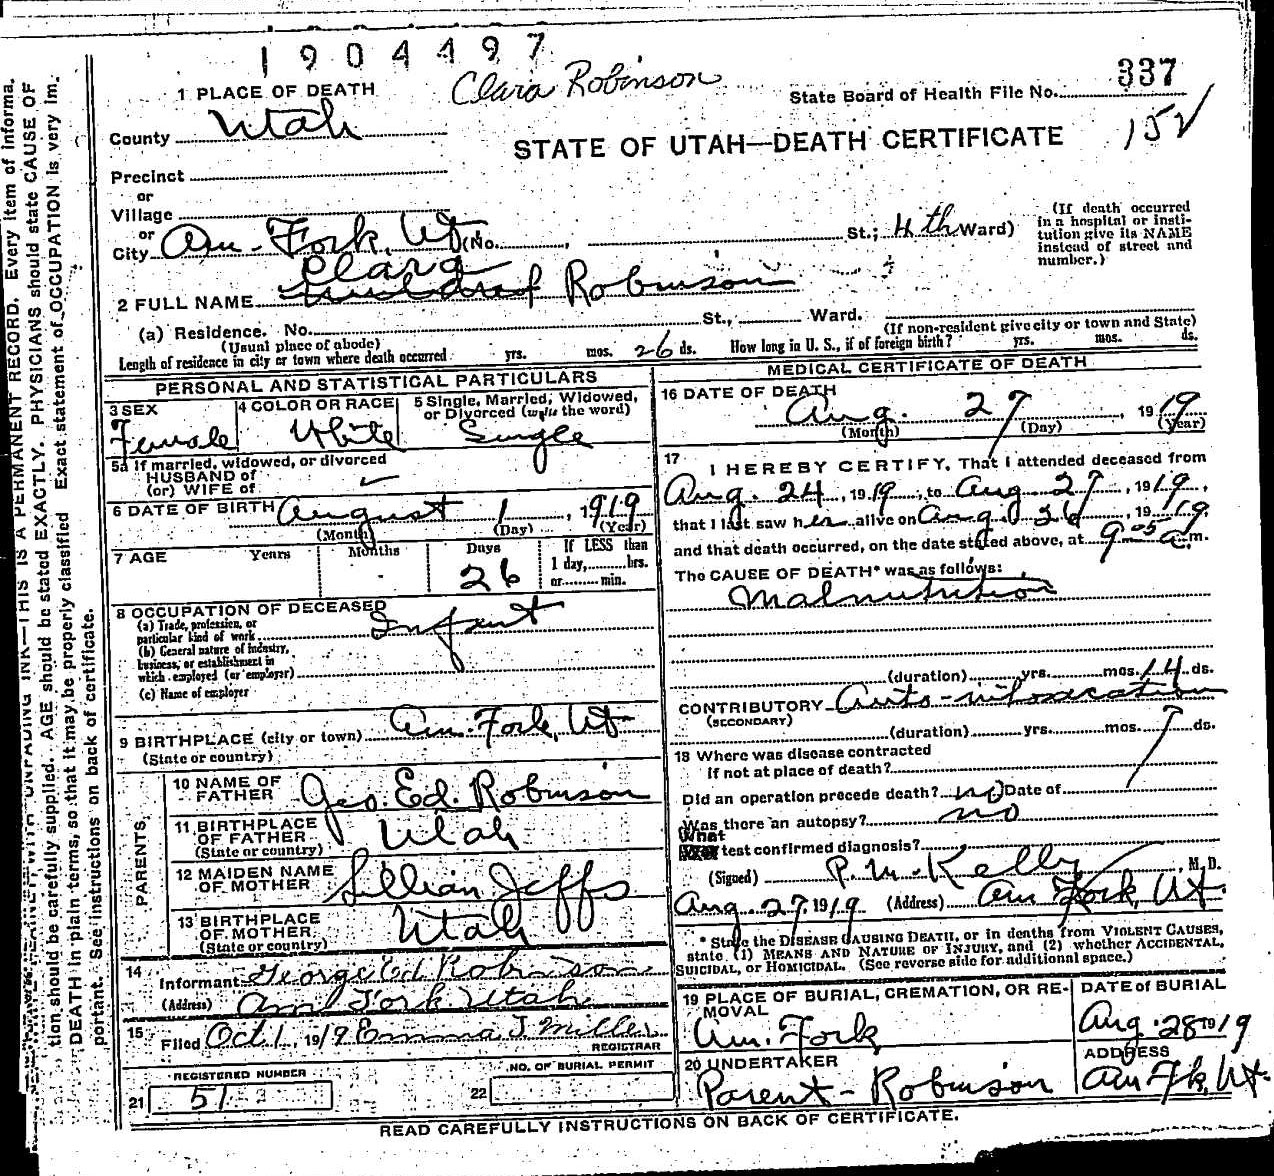 1904497
Clara Robinson
1 PLACE OF DEATH
State Board of Health File No. 337
County Utah
STATE OF UTAH—DEATH CERTIFICATE
152
Precinct
or
Village
or
City Am. Fork, Ut (No. , St.; 4th Ward)
(If death occurred in a hospital or institution give its NAME instead of street and number.)
Clara
2 FULL NAME Robinson
(a) Residence. No. St., Ward.
(Usual place of abode) (If non-resident give city or town and State)
Length of residence in city or town where death occurred yrs. mos. 26 ds. How long in U. S., if of foreign birth? yrs. mos. ds.
PERSONAL AND STATISTICAL PARTICULARS
3 SEX Female
4 COLOR OR RACE White
5 Single, Married, Widowed, or Divorced (write the word) Single
5a If married, widowed, or divorced
HUSBAND of
(or) WIFE of
6 DATE OF BIRTH August 1, 1919
(Month) (Day) (Year)
7 AGE Years Months Days 26 If LESS than 1 day, hrs. or min.
8 OCCUPATION OF DECEASED Infant
(a) Trade, profession, or
particular kind of work
(b) General nature of industry,
business, or establishment in
which employed (or employer)
(c) Name of employer
9 BIRTHPLACE (city or town) Am. Fork, Ut
(State or country)
PARENTS
10 NAME OF FATHER Geo. Ed. Robinson
11 BIRTHPLACE OF FATHER Utah
(State or country)
12 MAIDEN NAME OF MOTHER Lillian Jeffs
13 BIRTHPLACE OF MOTHER Utah
(State or country)
14 Informant George Ed Robinson
(Address) Am Fork Utah
15 Filed Oct 1, 1919 Emma J. Miller
REGISTRAR
REGISTERED NUMBER
21 51
NO. OF BURIAL PERMIT
22
MEDICAL CERTIFICATE OF DEATH
16 DATE OF DEATH Aug. 27, 1919
(Month) (Day) (Year)
17 I HEREBY CERTIFY, That I attended deceased from
Aug. 24, 1919, to Aug. 27, 1919,
that I last saw her alive on Aug. 26, 1919,
and that death occurred, on the date stated above, at 9 05 a.m.
The CAUSE OF DEATH* was as follows:
Malnutrition
(duration) yrs. mos. 14 ds.
CONTRIBUTORY Auto-intoxication
(SECONDARY)
(duration) yrs. mos. 7 ds.
18 Where was disease contracted
If not at place of death?
Did an operation precede death? no Date of
Was there an autopsy? no
What test confirmed diagnosis?
(Signed) P. M. Kelly, M. D.
Aug. 27, 1919 (Address) Am Fork, Ut.
* State the DISEASE CAUSING DEATH, or in deaths from VIOLENT CAUSES,
state (1) MEANS AND NATURE OF INJURY, and (2) whether ACCIDENTAL,
SUICIDAL, OR HOMICIDAL. (See reverse side for additional space.)
19 PLACE OF BURIAL, CREMATION, OR REMOVAL Am. Fork
DATE of BURIAL Aug. 28 1919
20 UNDERTAKER Parent - Robinson
ADDRESS Am Fk, Ut.
READ CAREFULLY INSTRUCTIONS ON BACK OF CERTIFICATE.
THIS IS A PERMANENT RECORD. Every item of informa-
tion should be carefully supplied. AGE should be stated EXACTLY. PHYSICIANS should state CAUSE OF
DEATH in plain terms, so that it may be properly classified. Exact statement of OCCUPATION is very im-
portant. See instructions on back of certificate.